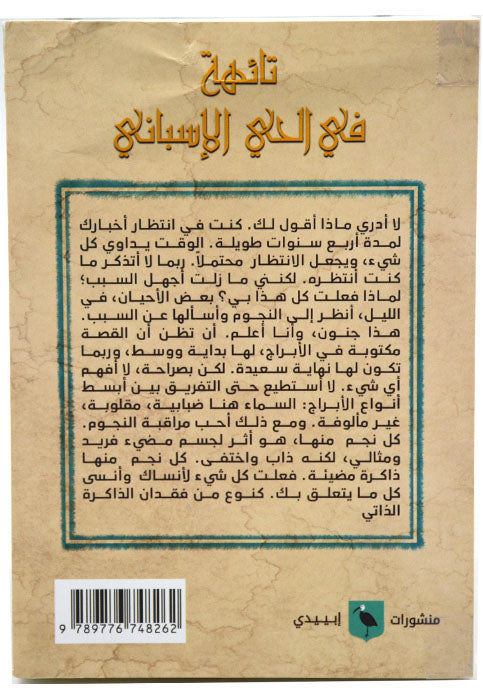 تائهة
في الحي الإسباني
لا أدري ماذا أقول لك. كنت في انتظار أخبارك
لمدة أربع سنوات طويلة. الوقت يداوي كل
شيء، ويجعل الانتظار محتملاً. ربما لا أتذكر ما
كنت أنتظره. لكنني ما زلت أجهل السبب؛
لماذا فعلت كل هذا بي؟ بعض الأحيان، في
الليل، أنظر إلى النجوم وأسألها عن السبب.
هذا جنون، وأنا أعلم. أن تظن أن القصة
مكتوبة في الأبراج، لها بداية ووسط، وربما
تكون لها نهاية سعيدة. لكن بصراحة، لا أفهم
أي شيء. لا أستطيع حتى التفريق بين أبسط
أنواع الأبراج: السماء هنا ضبابية، مقلوبة،
غير مألوفة. ومع ذلك أحب مراقبة النجوم.
كل نجم منها، هو أثر لجسم مضيء فريد
ومثالي، لكنه ذاب واختفى. كل نجم منها
ذاكرة مضيئة. فعلت كل شيء لأنساك وأنسى
كل ما يتعلق بك. كنوع من فقدان الذاكرة
الذاتي
9 789776 748262
منشورات إبييدي